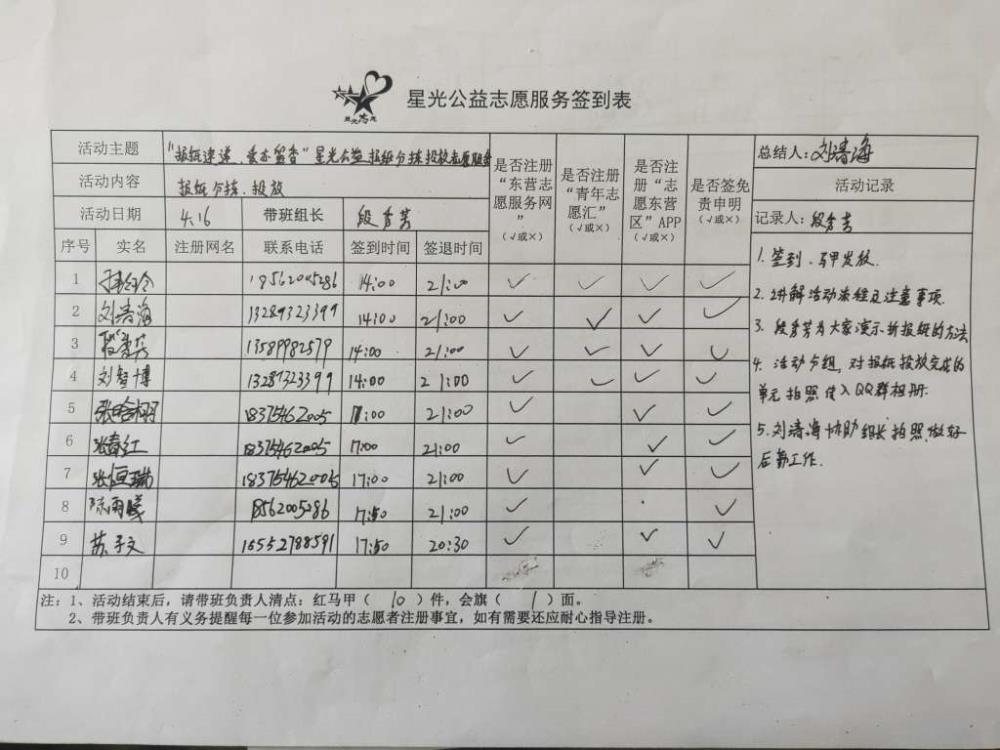 星光志愿
星光公益志愿服务签到表
活动主题 "报纸速递、爱心留香"星光公益报纸分拣投放志愿服务 是否注册“东营志愿服务网”(√或×) 是否注册“青年志愿汇”(√或×) 是否注册“志愿东营区”APP(√或×) 是否签免责申明(√或×) 总结人:刘清海
活动内容 报纸分拣、投放 活动记录
活动日期 4.16 带班组长 段秀芳 记录人:段秀芳
序号 实名 注册网名 联系电话 签到时间 签退时间
1 18562005286 14:00 21:00 √ √ √ √
2 刘清海 13289323399 14:00 21:00 √ √ √ √
3 段秀芳 13589982579 14:00 21:00 √ √ √ √
4 刘智博 13289323399 14:00 21:00 √ √ √ √
5 18375462005 17:00 21:00 √ √ √
6 张春红 18375462005 17:00 21:00 √ √ √
7 张恒瑞 18375462005 17:00 21:00 √ √ √
8 陈雨曦 18562005286 17:50 21:00 √ √
9 苏子文 16552788591 17:50 20:30 √ √ √
10
1.签到、马甲发放.
2.讲解活动流程及注意事项.
3.段秀芳为大家演示折报纸的方法
4.活动分组,对报纸投放完成的
单元拍照传入QQ群相册.
5.刘清海协助组长拍照,做好
后勤工作.
注:1、活动结束后,请带班负责人清点:红马甲( 10 )件,会旗( 1 )面。
2、带班负责人有义务提醒每一位参加活动的志愿者注册事宜,如有需要还应耐心指导注册。